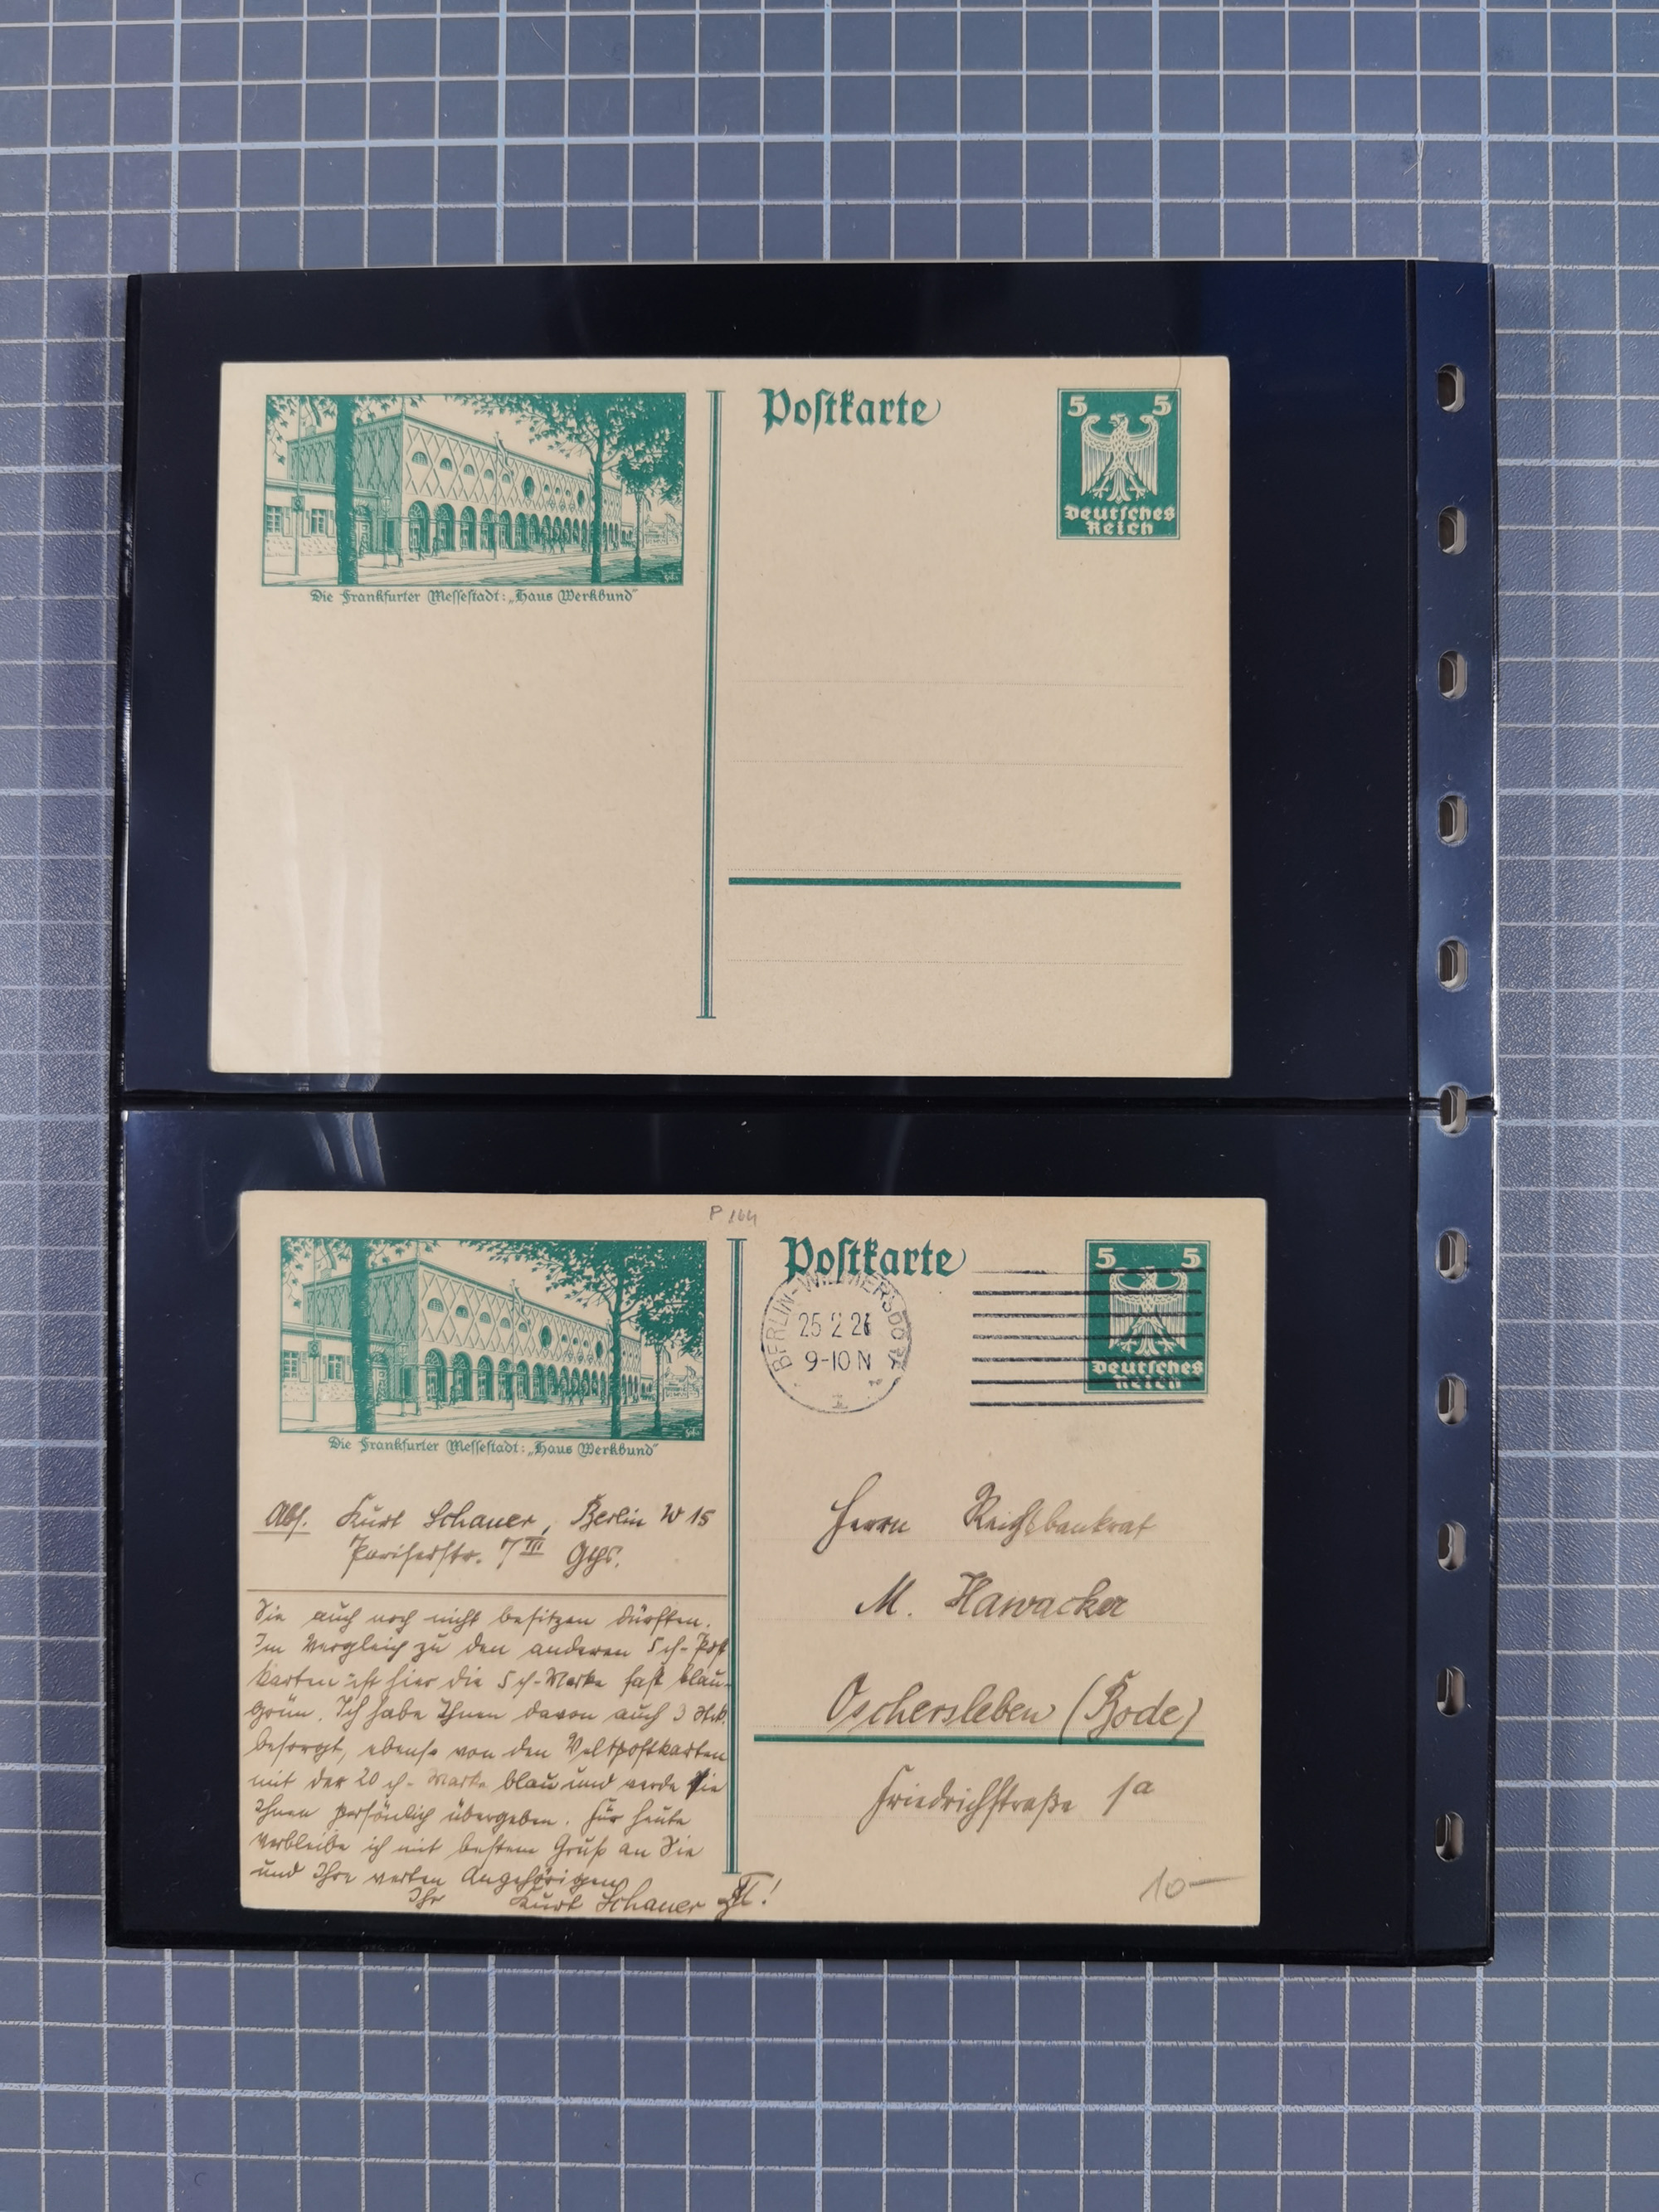 Postkarte
5 5
Deutsches
Reich
Die Frankfurter Messestadt: „Haus Werkbund"
P 164
Postkarte
5 5
Deutsches
Reich
BERLIN-WILMERSDORF
25 2 26
9-10 N
Die Frankfurter Messestadt: „Haus Werkbund"
Abs. Kurt Schauer, Berlin W 15
Pariserstr. 7 III Gths.
Sie auch noch nicht besitzen dürften.
Im Vergleich zu den anderen 5 ₰-Post
karten ist hier die 5 ₰-Marke fast blau-
grün. Ich habe Ihnen davon auch 3 Stck.
besorgt, ebenso von den Weltpostkarten
mit der 20 ₰-Marke blau und werde sie
Ihnen persönlich übergeben. Für heute
verbleibe ich mit bestem Gruß an Sie
und Ihre werten Angehörigen
Ihr Kurt Schauer
Herrn Reichsbankrat
M. Hawacker
Oschersleben (Bode)
Friedrichstraße 1a
10—